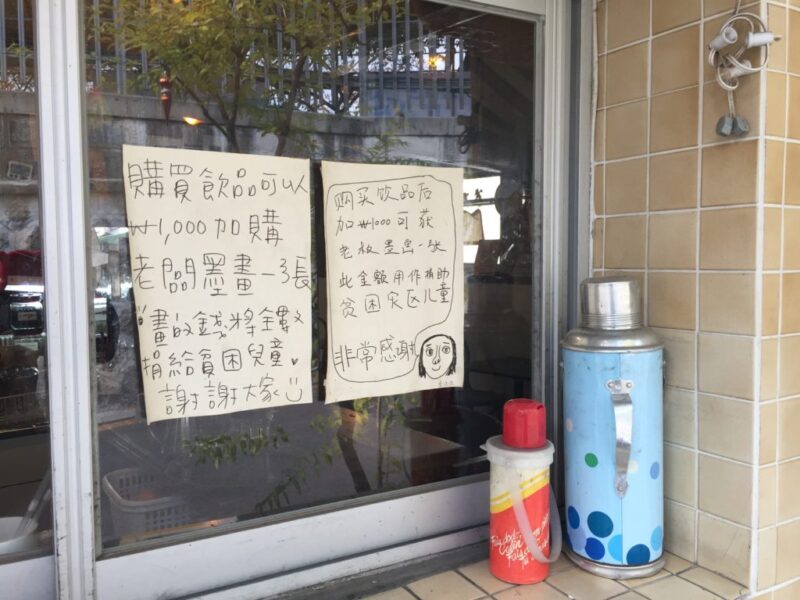 購買飲品可以
₩1,000加購
老闆墨畫一張
畫的錢將
捐給貧困兒童。
謝謝大家
购买饮品后
加₩1000可获
老板墨画一张
此金额用作捐助
贫困灾区儿童
非常感谢